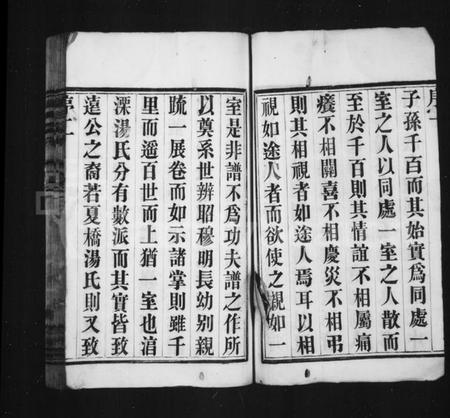 子孫千百而其始實爲同處一
室之人以同處一室之人散而
至於千百則其情誼不相屬痛
癢不相關喜不相慶災不相弔
則其相視者如途人焉耳以相
視如途人者而欲使之視如一
室是非譜不爲功夫譜之作所
以奠系世辨昭穆明長幼別親
疏一展卷而如示諸掌則雖千
里而遥百世而上猶一室也淯
溧湯氏分有數派而其實皆致
遠公之裔若夏橋湯氏則又致